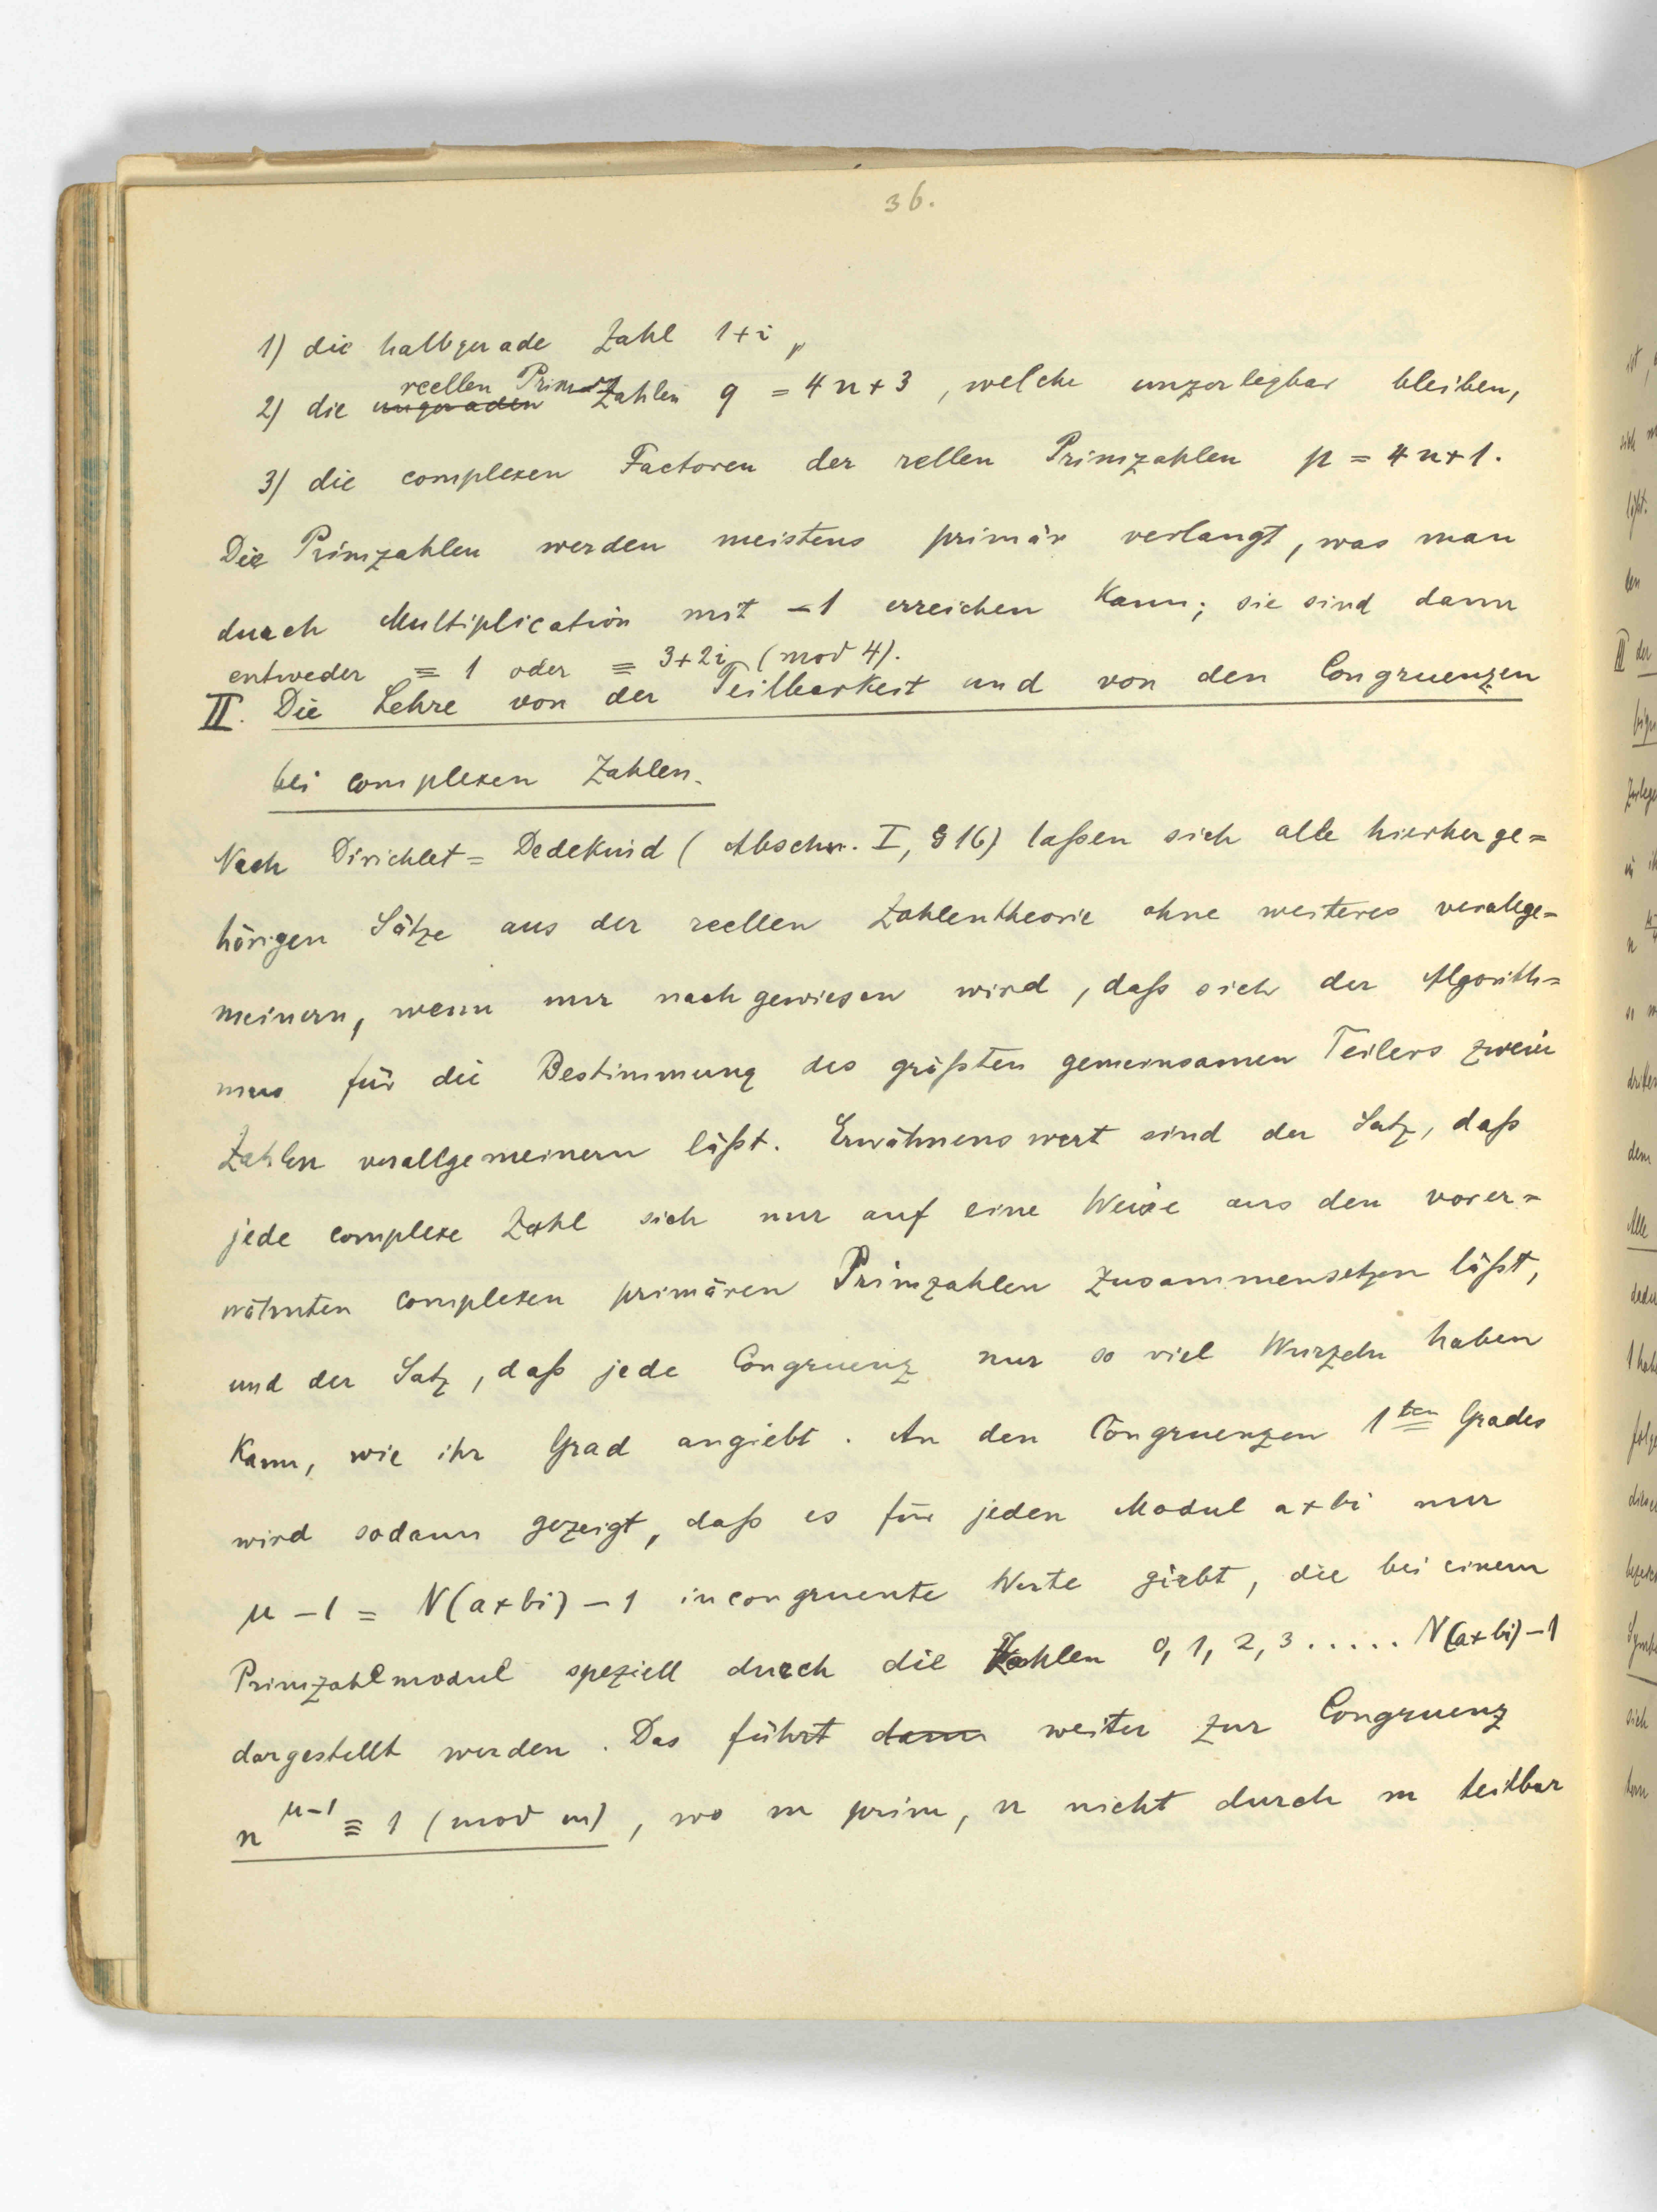 36.
1) die halbgerade Zahl 1+i,
reellen Prim
2) die ungeraden Zahlen q = 4n+3, welche unzerlegbar bleiben,
3) die complexen Factoren der rellen Primzahlen p = 4n+1.
Die Primzahlen werden meistens primär verlangt, was man
durch Multiplication mit -1 erreichen kann; sie sind dann
entweder ≡ 1 oder ≡ 3+2i (mod 4).
II. Die Lehre von der Teilbarkeit und von den Congruenzen
bei complexen Zahlen.
Nach Dirichlet= Dedekind (Abschn. I, §16) laßen sich alle hierherge=
hörigen Sätze aus der reellen Zahlentheorie ohne weiteres verallge=
meinern, wenn nur nachgewiesen wird, daß sich der Algorith=
mus für die Bestimmung des größten gemeinsamen Teilers zweier
Zahlen verallgemeinern läßt. Erwähnenswert sind der Satz, daß
jede complexe Zahl sich nur auf eine Weise aus den vorer=
wähnten complexen primären Primzahlen zusammensetzen läßt,
und der Satz, daß jede Congruenz nur so viel Wurzeln haben
kann, wie ihr Grad angiebt. An den Congruenzen 1ten Grades
wird sodann gezeigt, daß es für jeden Modul a+bi nur
μ-1 = N(a+bi)-1 incongruente Werte giebt, die bei einem
Primzahlmodul speziell durch die Zahlen 0, 1, 2, 3 ..... N(a+bi)-1
dargestellt werden. Das führt dann weiter zur Congruenz
n^μ-1 ≡ 1 (mod m), wo m prim, n nicht durch m teilbar